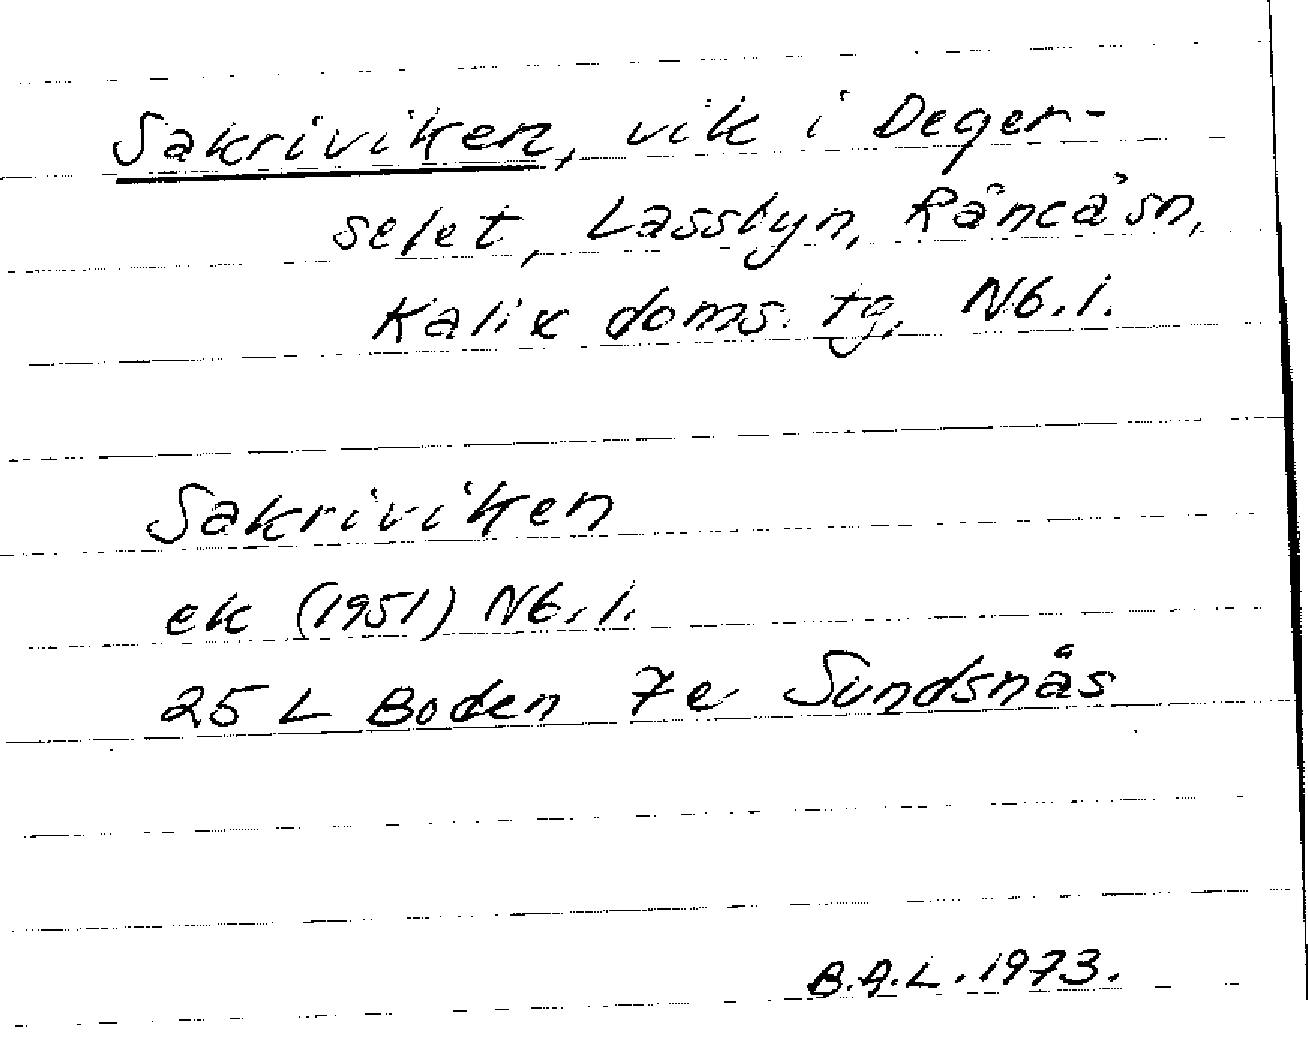 Sakriviken, vik i Deger-
selet, Lassbyn, Råneå sn,
Kalix doms. tg, Nb. l.
Sakriviken
ek (1951) Nb. l.
25 L Boden 7e Sundsnäs
B.A.L. 1973.